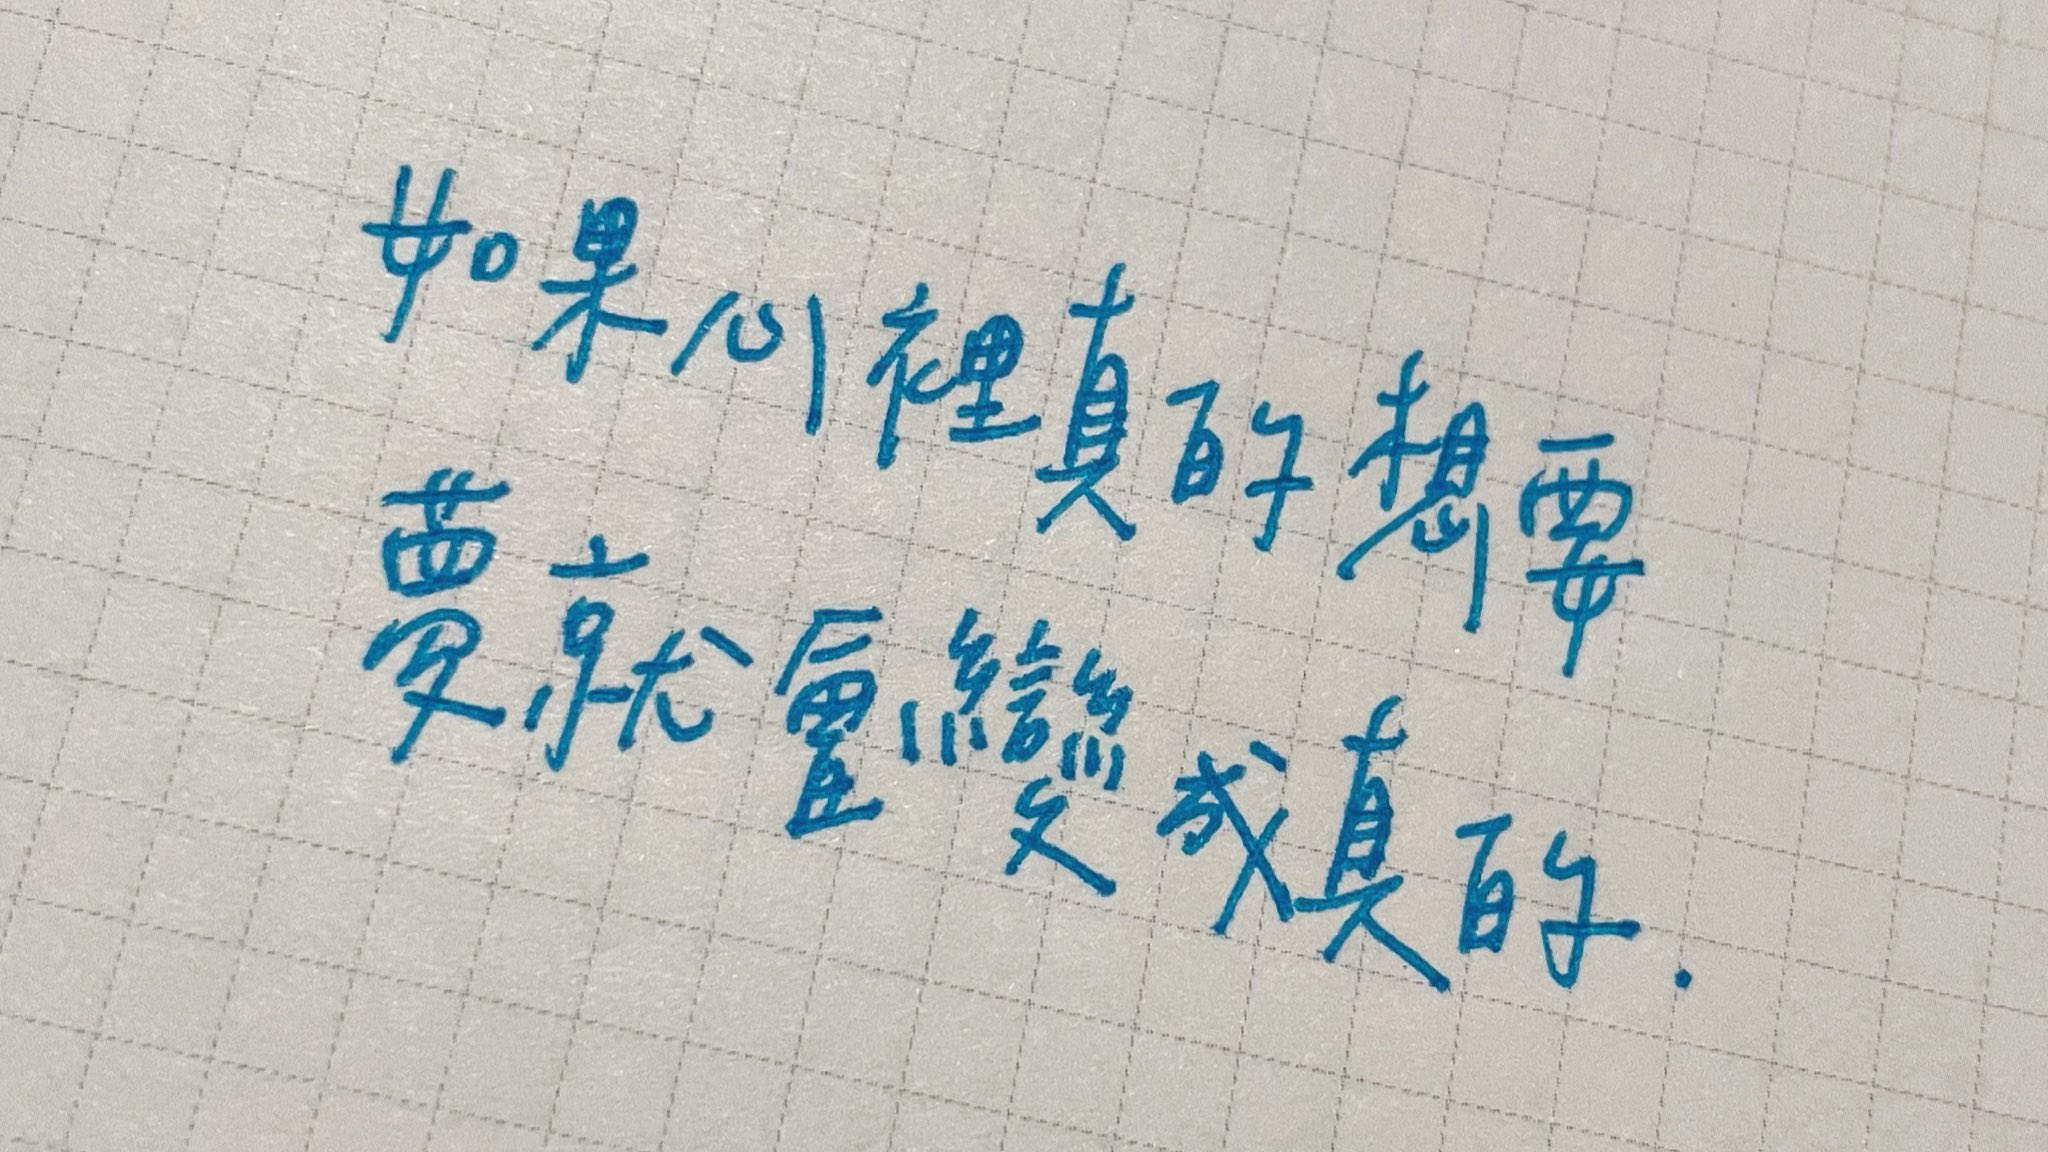 如果心裡真的想要
夢就會變成真的.